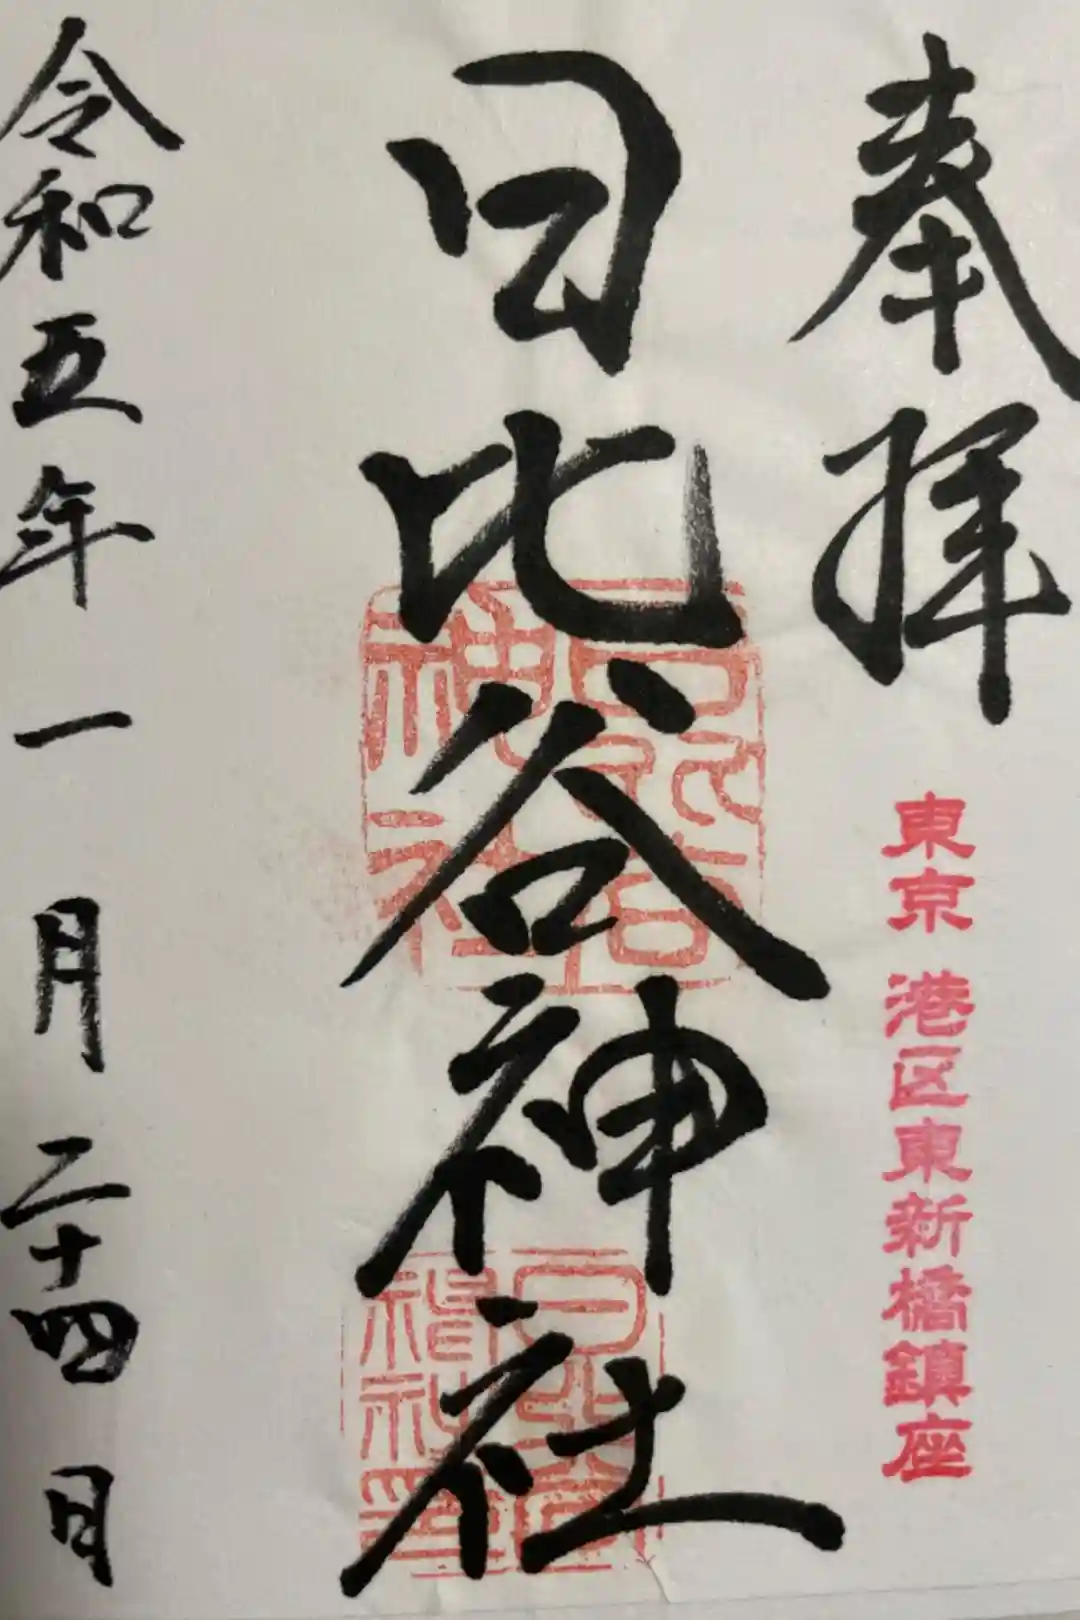 奉拝
東京 港区東新橋鎮座
日比谷神社
日比谷神社
令和五年一月二十四日